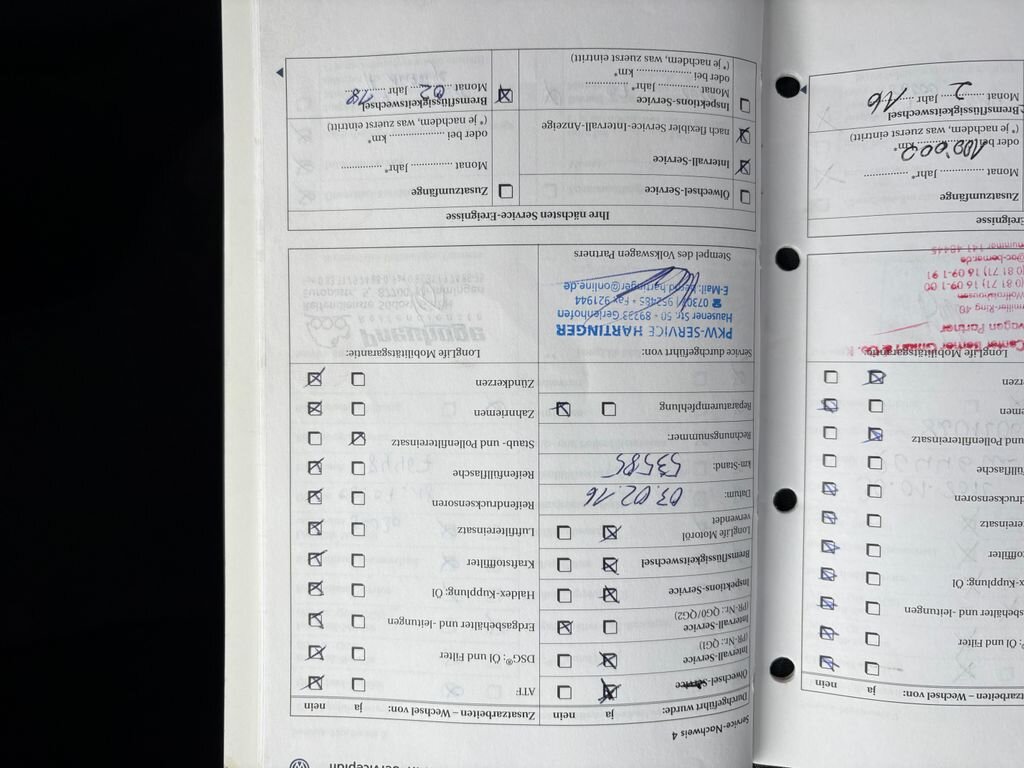 Serviceplan
Service-Nachweis 4
Durchgeführt wurde: ja nein
Ölwechsel-Service
Intervall-Service
(PR-Nr.: QG1)
Intervall-Service
(PR-Nr.: QG0/QG2)
Inspektions-Service
Bremsflüssigkeitswechsel
LongLife Motoröl
verwendet
Datum: 03.02.16
km-Stand: 53585
Rechnungsnummer:
Reparaturempfehlung
Service durchgeführt von:
PKW-SERVICE HARTINGER
Hausener Str. 50 - 89233 Gerlenhofen
☎ 07307 952465 • Fax 921944
E-Mail: bernd.hartinger@online.de
Stempel des Volkswagen Partners
Zusatzarbeiten – Wechsel von: ja nein
ATF
DSG®: Öl und Filter
Erdgasbehälter und -leitungen
Haldex-Kupplung: Öl
Kraftstofffilter
Luftfiltereinsatz
Reifendrucksensoren
Reifenfüllflasche
Staub- und Pollenfiltereinsatz
Zahnriemen
Zündkerzen
LongLife Mobilitätsgarantie:
Ihre nächsten Service-Ereignisse
Ölwechsel-Service
Intervall-Service
nach flexibler Service-Intervall-Anzeige
Inspektions-Service
Monat .......... Jahr* ..........
oder bei .......... km*
(* je nachdem, was zuerst eintritt)
Zusatzumfänge
Monat .......... Jahr* ..........
oder bei .......... km*
(* je nachdem, was zuerst eintritt)
Bremsflüssigkeitswechsel
Monat 02 Jahr 18
zarbeiten – Wechsel von: ja nein
: Öl und Filter
behälter und -leitungen
ex-Kupplung: Öl
tofffilter
tereinsatz
drucksensoren
füllflasche
und Pollenfiltereinsatz
men
rzen
LongLife Mobilitätsgarantie:
wagen Partner
Wolfratshausen
(0 81 71) 16 09-1 00
(0 81 71) 16 09-1 91
Ereignisse
Zusatzumfänge
Monat .......... Jahr* ..........
oder bei 100.000 km*
(* je nachdem, was zuerst eintritt)
Bremsflüssigkeitswechsel
Monat 2 Jahr 16